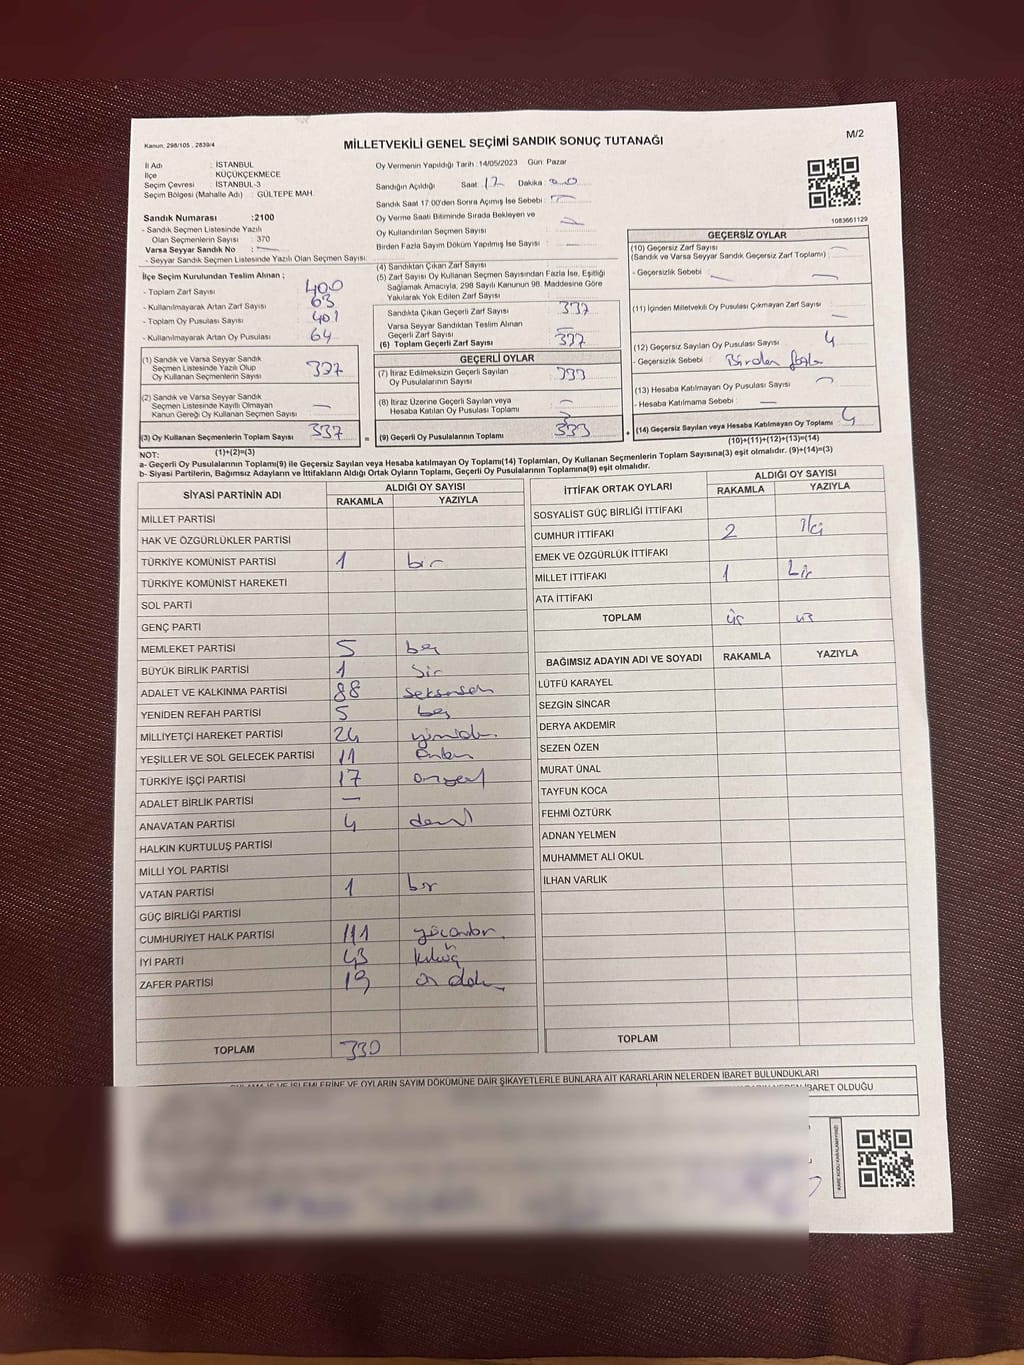 Kanun, 298/105 , 2839/4
MİLLETVEKİLİ GENEL SEÇİMİ SANDIK SONUÇ TUTANAĞI
M/2
İl Adı : İSTANBUL
İlçe : KÜÇÜKÇEKMECE
Seçim Çevresi : İSTANBUL-3
Seçim Bölgesi (Mahalle Adı) : GÜLTEPE MAH.
Sandık Numarası :2100
- Sandık Seçmen Listesinde Yazılı
Olan Seçmenlerin Sayısı : 370
Varsa Seyyar Sandık No : —
- Seyyar Sandık Seçmen Listesinde Yazılı Olan Seçmen Sayısı:
Oy Vermenin Yapıldığı Tarih : 14/05/2023 Gün: Pazar
Sandığın Açıldığı Saat : 17 Dakika : 00
Sandık Saat 17:00'den Sonra Açılmış İse Sebebi : —
Oy Verme Saati Bitiminde Sırada Bekleyen ve
Oy Kullandırılan Seçmen Sayısı : —
Birden Fazla Sayım Döküm Yapılmış İse Sayısı : —
1083661129
İlçe Seçim Kurulundan Teslim Alınan ;
- Toplam Zarf Sayısı : 400
- Kullanılmayarak Artan Zarf Sayısı : 63
- Toplam Oy Pusulası Sayısı : 401
- Kullanılmayarak Artan Oy Pusulası : 64
(1) Sandık ve Varsa Seyyar Sandık
Seçmen Listesinde Yazılı Olup
Oy Kullanan Seçmenlerin Sayısı : 337
(2) Sandık ve Varsa Seyyar Sandık
Seçmen Listesinde Kayıtlı Olmayan
Kanun Gereği Oy Kullanan Seçmen Sayısı : —
(3) Oy Kullanan Seçmenlerin Toplam Sayısı : 337
(1)+(2)=(3)
(4) Sandıktan Çıkan Zarf Sayısı :
(5) Zarf Sayısı Oy Kullanan Seçmen Sayısından Fazla İse, Eşitliği
Sağlamak Amacıyla, 298 Sayılı Kanunun 98. Maddesine Göre
Yakılarak Yok Edilen Zarf Sayısı :
Sandıkta Çıkan Geçerli Zarf Sayısı : 337
Varsa Seyyar Sandıktan Teslim Alınan
Geçerli Zarf Sayısı : —
(6) Toplam Geçerli Zarf Sayısı : 337
GEÇERLİ OYLAR
(7) İtiraz Edilmeksizin Geçerli Sayılan
Oy Pusulalarının Sayısı : 333
(8) İtiraz Üzerine Geçerli Sayılan veya
Hesaba Katılan Oy Pusulası Toplamı : —
= (9) Geçerli Oy Pusulalarının Toplamı : 333
GEÇERSİZ OYLAR
(10) Geçersiz Zarf Sayısı
(Sandık ve Varsa Seyyar Sandık Geçersiz Zarf Toplamı) : —
- Geçersizlik Sebebi : —
(11) İçinden Milletvekili Oy Pusulası Çıkmayan Zarf Sayısı : —
(12) Geçersiz Sayılan Oy Pusulası Sayısı : 4
- Geçersizlik Sebebi : Birden fazla
(13) Hesaba Katılmayan Oy Pusulası Sayısı : —
- Hesaba Katılmama Sebebi : —
+ (14) Geçersiz Sayılan veya Hesaba Katılmayan Oy Toplamı : 4
(10)+(11)+(12)+(13)=(14)
NOT:
a- Geçerli Oy Pusulalarının Toplamı(9) ile Geçersiz Sayılan veya Hesaba katılmayan Oy Toplamı(14) Toplamları, Oy Kullanan Seçmenlerin Toplam Sayısına(3) eşit olmalıdır. (9)+(14)=(3)
b- Siyasi Partilerin, Bağımsız Adayların ve İttifakların Aldığı Ortak Oyların Toplamı, Geçerli Oy Pusulalarının Toplamına(9) eşit olmalıdır.
SİYASİ PARTİNİN ADI ALDIĞI OY SAYISI
RAKAMLA YAZIYLA
MİLLET PARTİSİ
HAK VE ÖZGÜRLÜKLER PARTİSİ
TÜRKİYE KOMÜNİST PARTİSİ 1 bir
TÜRKİYE KOMÜNİST HAREKETİ
SOL PARTİ
GENÇ PARTİ
MEMLEKET PARTİSİ 5 beş
BÜYÜK BİRLİK PARTİSİ 1 bir
ADALET VE KALKINMA PARTİSİ 88 seksensek
YENİDEN REFAH PARTİSİ 5 beş
MİLLİYETÇİ HAREKET PARTİSİ 24
YEŞİLLER VE SOL GELECEK PARTİSİ 11 onbir
TÜRKİYE İŞÇİ PARTİSİ 17 onyedi
ADALET BİRLİK PARTİSİ —
ANAVATAN PARTİSİ 4 dört
HALKIN KURTULUŞ PARTİSİ
MİLLİ YOL PARTİSİ
VATAN PARTİSİ 1 bir
GÜÇ BİRLİĞİ PARTİSİ
CUMHURİYET HALK PARTİSİ 111 yüzonbir
İYİ PARTİ 43 kırküç
ZAFER PARTİSİ 19
TOPLAM 330
İTTİFAK ORTAK OYLARI ALDIĞI OY SAYISI
RAKAMLA YAZIYLA
SOSYALİST GÜÇ BİRLİĞİ İTTİFAKI
CUMHUR İTTİFAKI 2 iki
EMEK VE ÖZGÜRLÜK İTTİFAKI
MİLLET İTTİFAKI 1 bir
ATA İTTİFAKI
TOPLAM üç üç
BAĞIMSIZ ADAYIN ADI VE SOYADI RAKAMLA YAZIYLA
LÜTFÜ KARAYEL
SEZGİN SİNCAR
DERYA AKDEMİR
SEZEN ÖZEN
MURAT ÜNAL
TAYFUN KOCA
FEHMİ ÖZTÜRK
ADNAN YELMEN
MUHAMMET ALİ OKUL
İLHAN VARLIK
TOPLAM
İŞLEMLERİNE VE OYLARIN SAYIM DÖKÜMÜNE DAİR ŞİKAYETLERLE BUNLARA AİT KARARLARIN NELERDEN İBARET BULUNDUKLARI
İBARET OLDUĞU